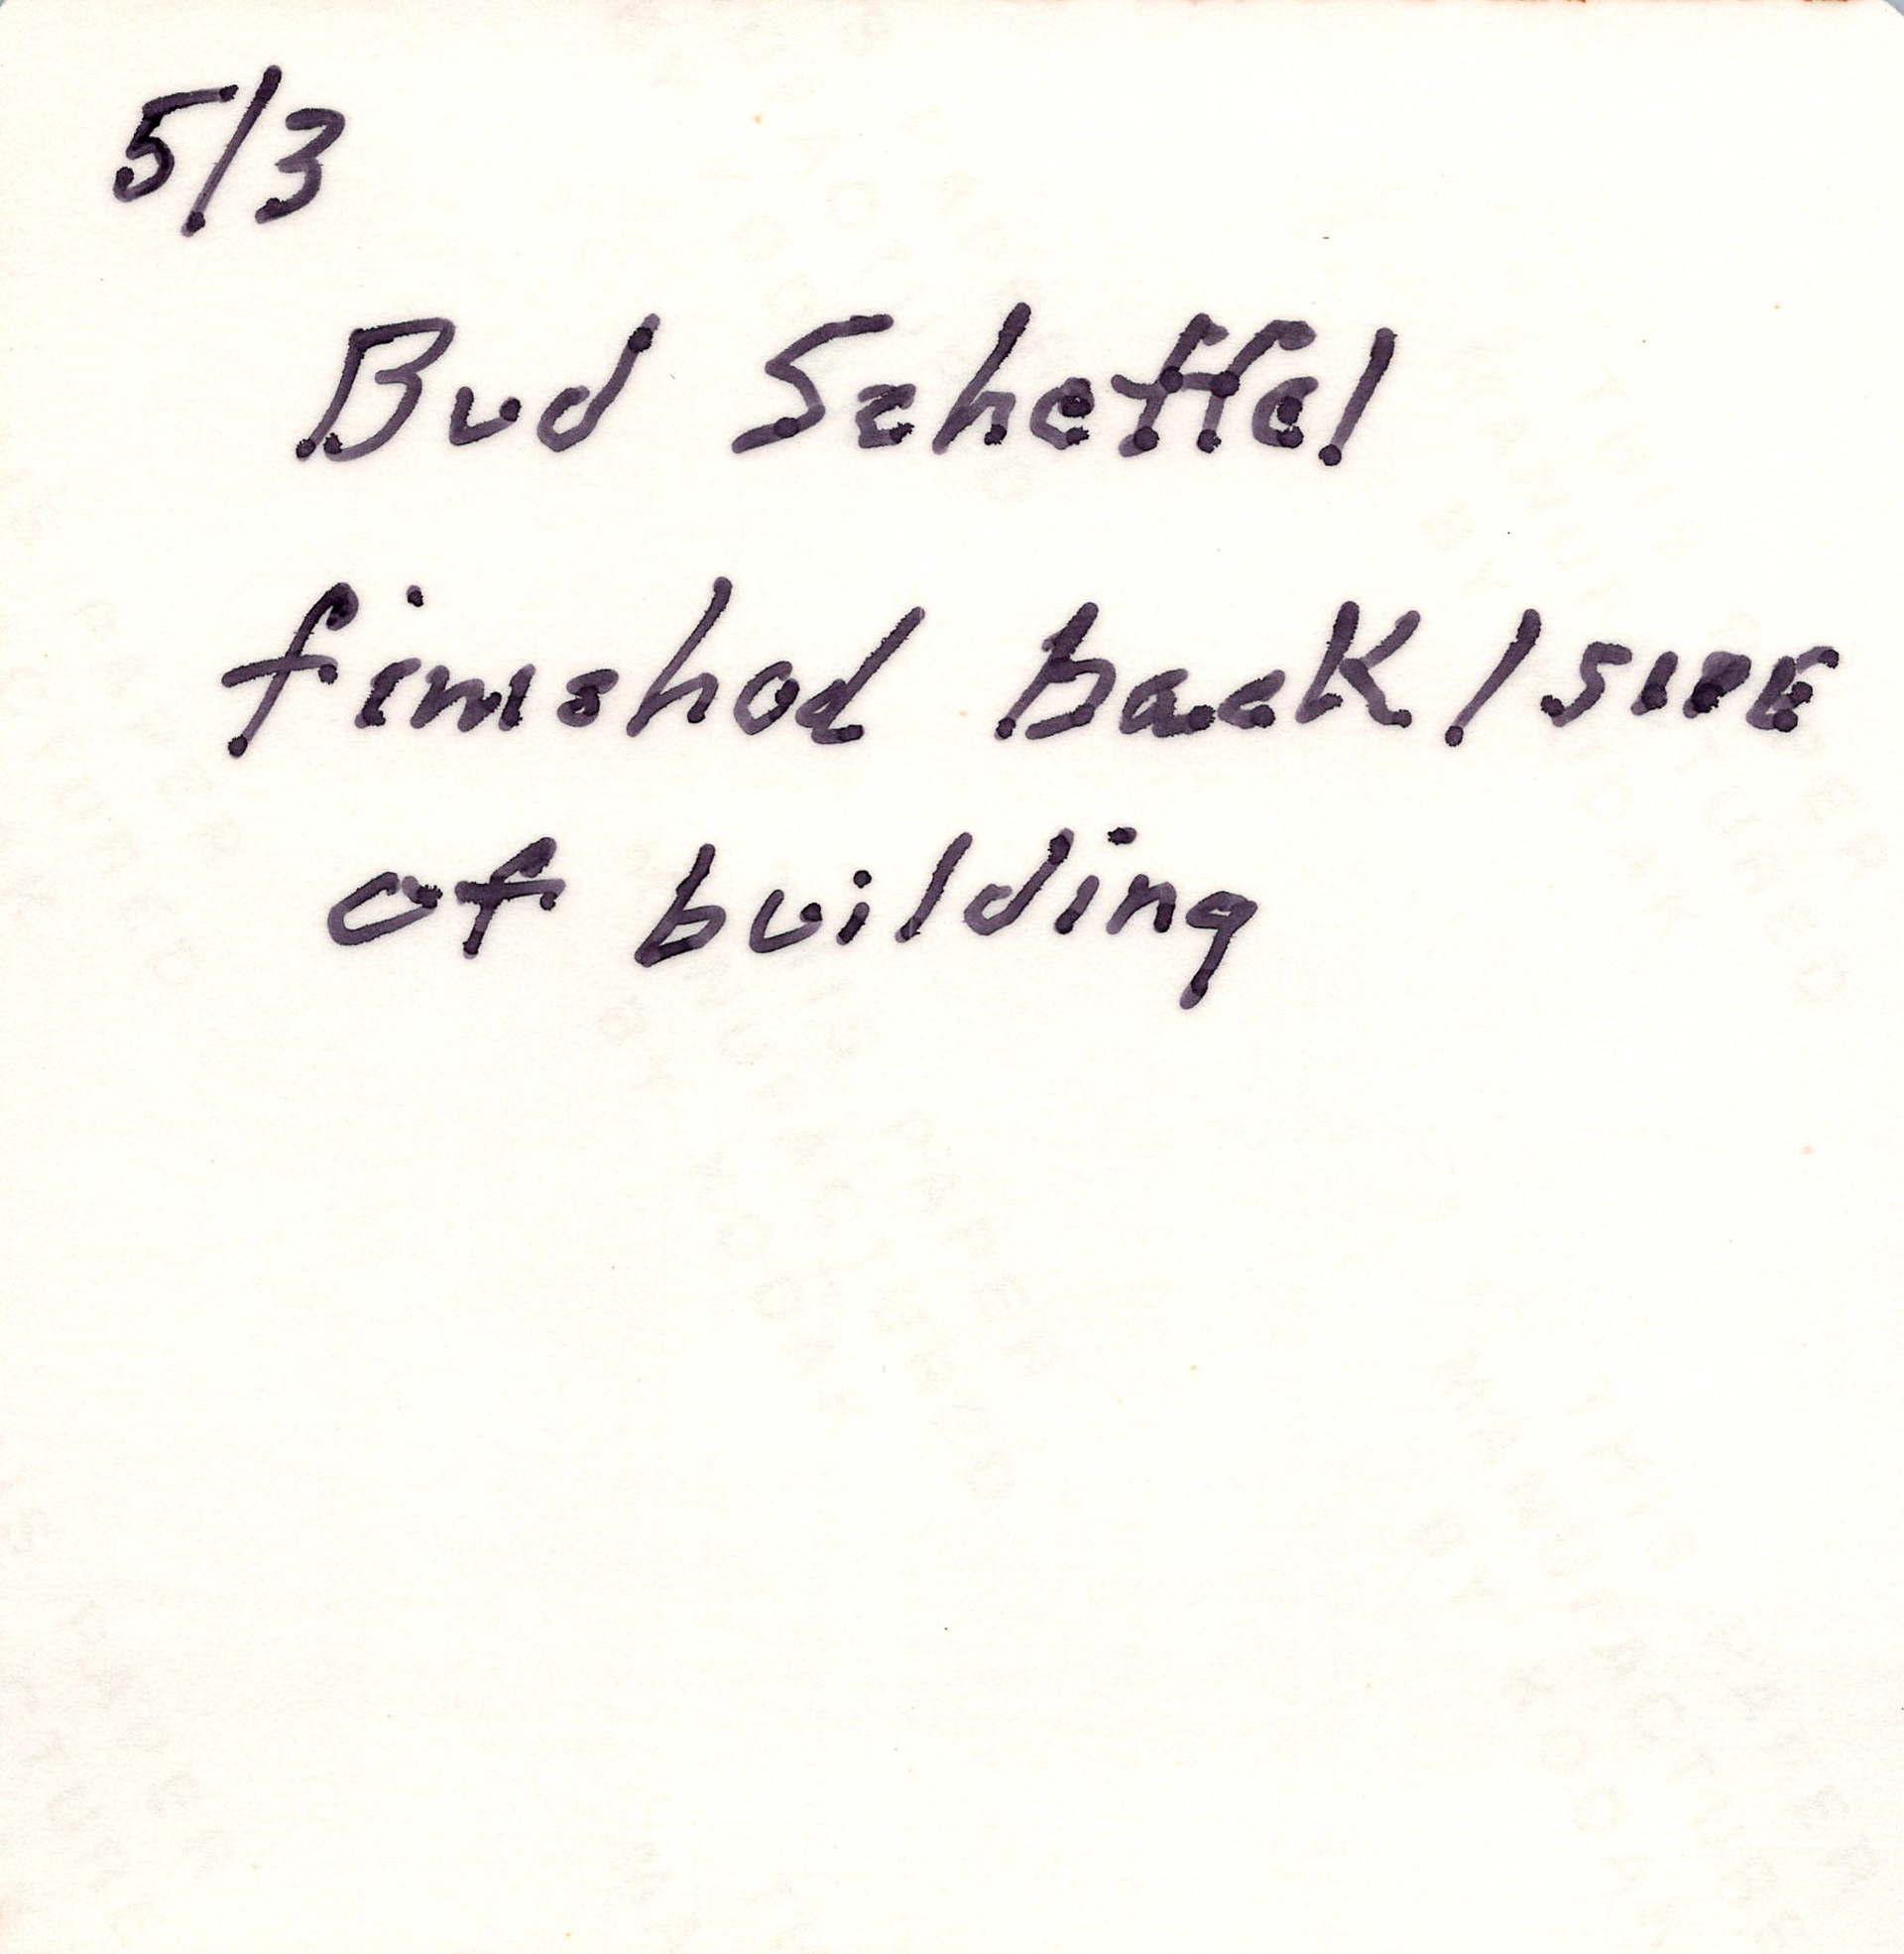 5/3
Bud Scheffel
finished back / SIDE
of building